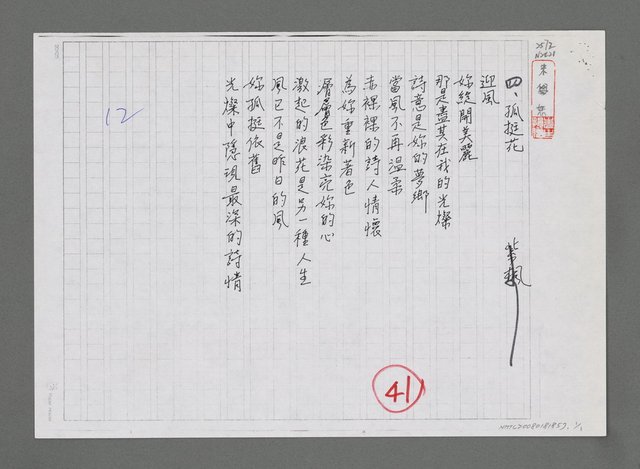 四、孤挺花
紫楓
迎風
妳綻開美麗
那是盡其在我的光燦
詩意是妳的夢鄉
當風不再溫柔
赤裸裸的詩人情懷
為妳重新著色
層層色彩染亮妳的心
激起的浪花是另一種人生
風已不是昨日的風
妳孤挺依舊
光燦中隱現最深的詩情
12
41
NMTL20080181957. 1/1